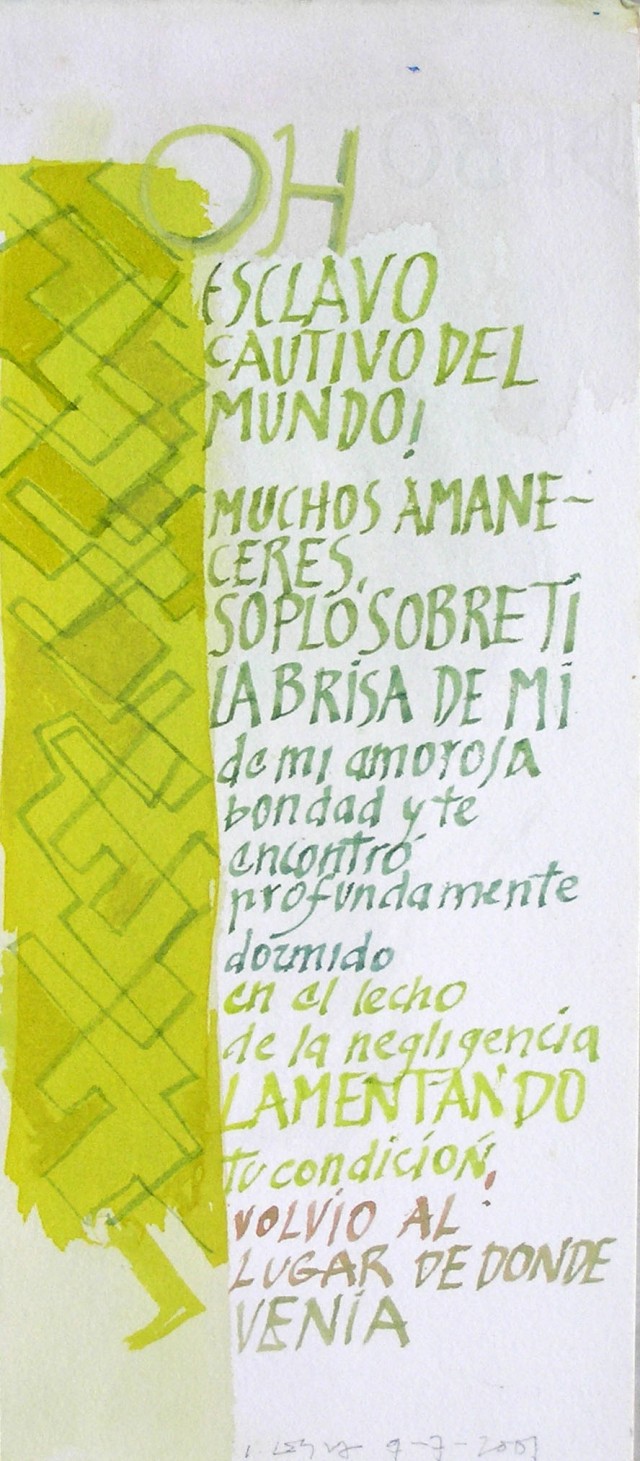 OH
ESCLAVO
CAUTIVO DEL
MUNDO!
MUCHOS AMANE-
CERES,
SOPLÓ SOBRE TI
LA BRISA DE MI
de mi amorosa
bondad y te
encontró
profundamente
dormido
en el lecho
de la negligencia
LAMENTANDO
tu condición,
VOLVIO AL
LUGAR DE DONDE
VENÍA
9-7-2001